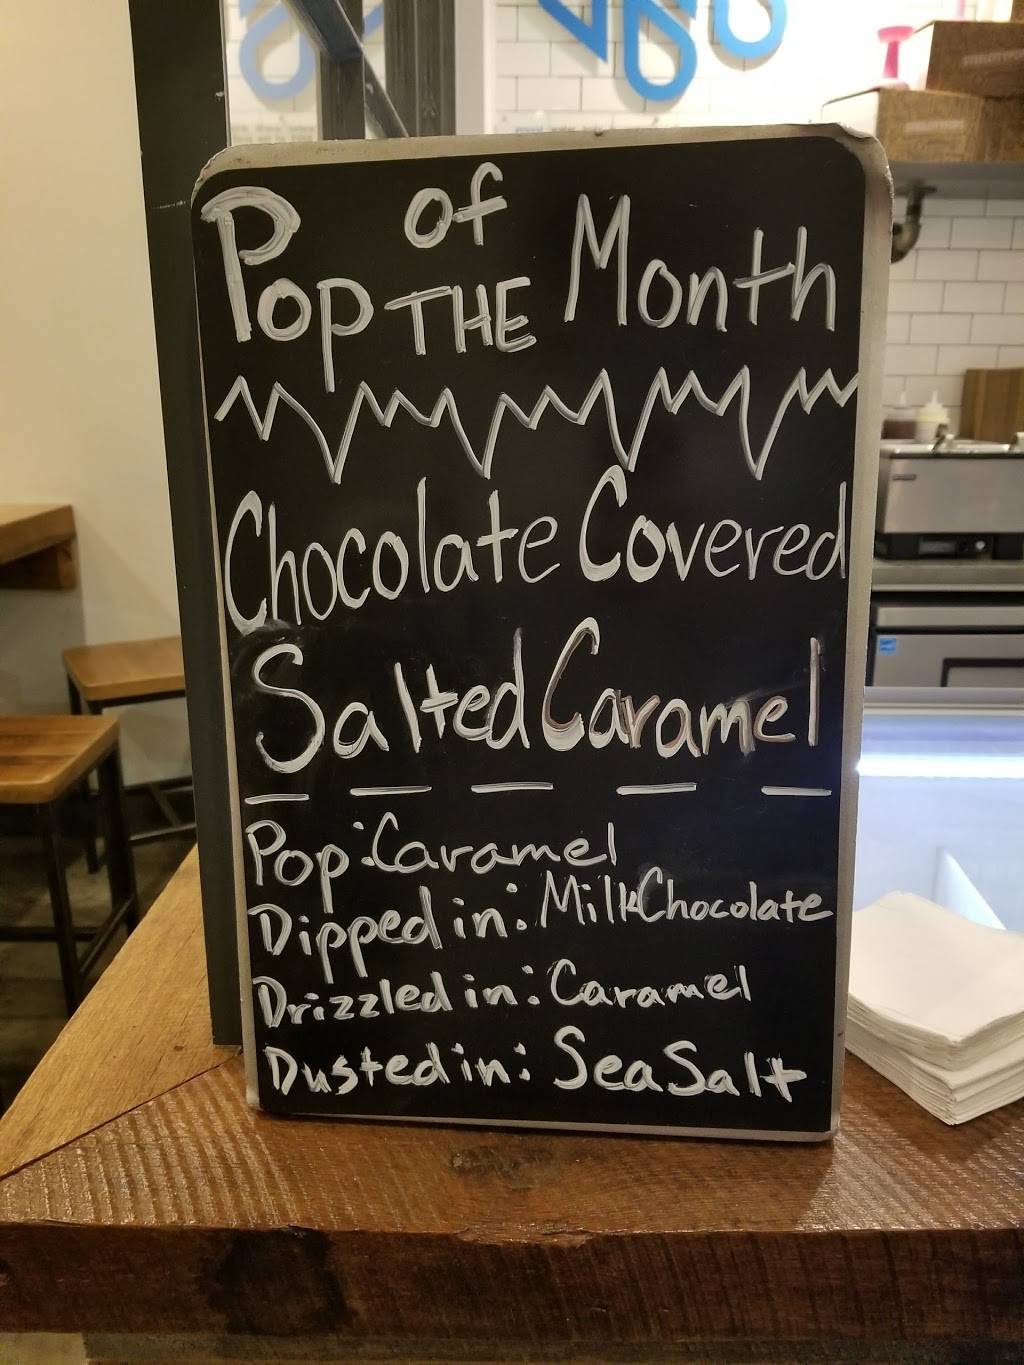 Pop of THE Month
Chocolate Covered
Salted Caramel
Pop: Caramel
Dipped in: Milk Chocolate
Drizzled in: Caramel
Dusted in: Sea Salt